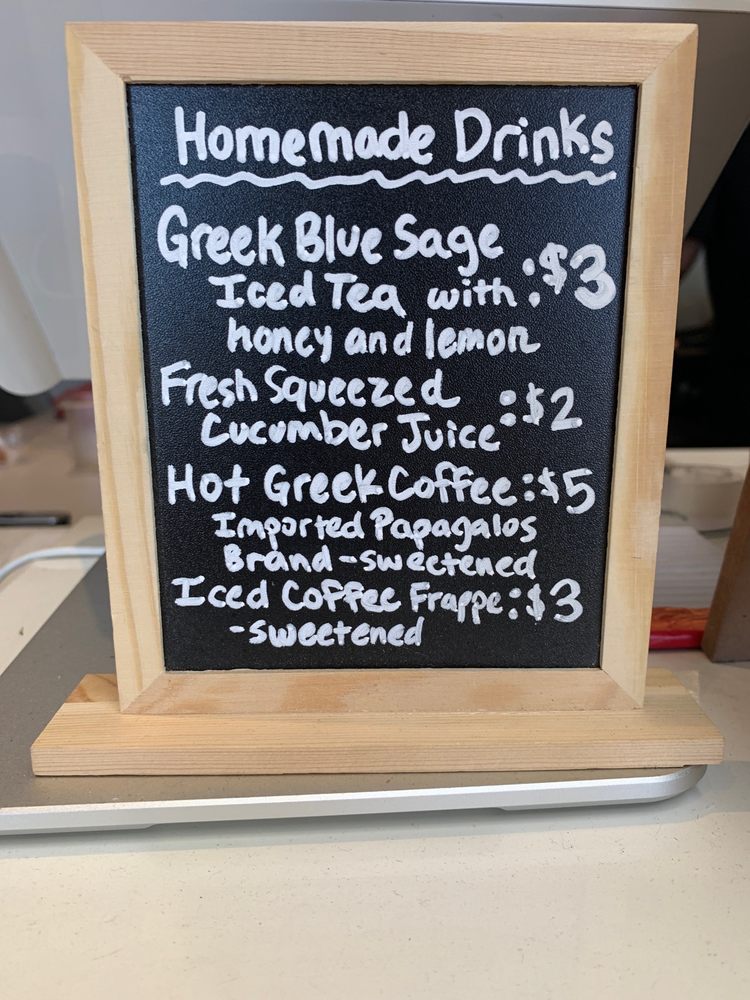 Homemade Drinks
Greek Blue Sage
Iced Tea with :$3
honey and lemon
Fresh Squeezed
Cucumber Juice :$2
Hot Greek Coffee:$5
Imported Papagalos
Brand-sweetened
Iced Coffee Frappe:$3
-sweetened